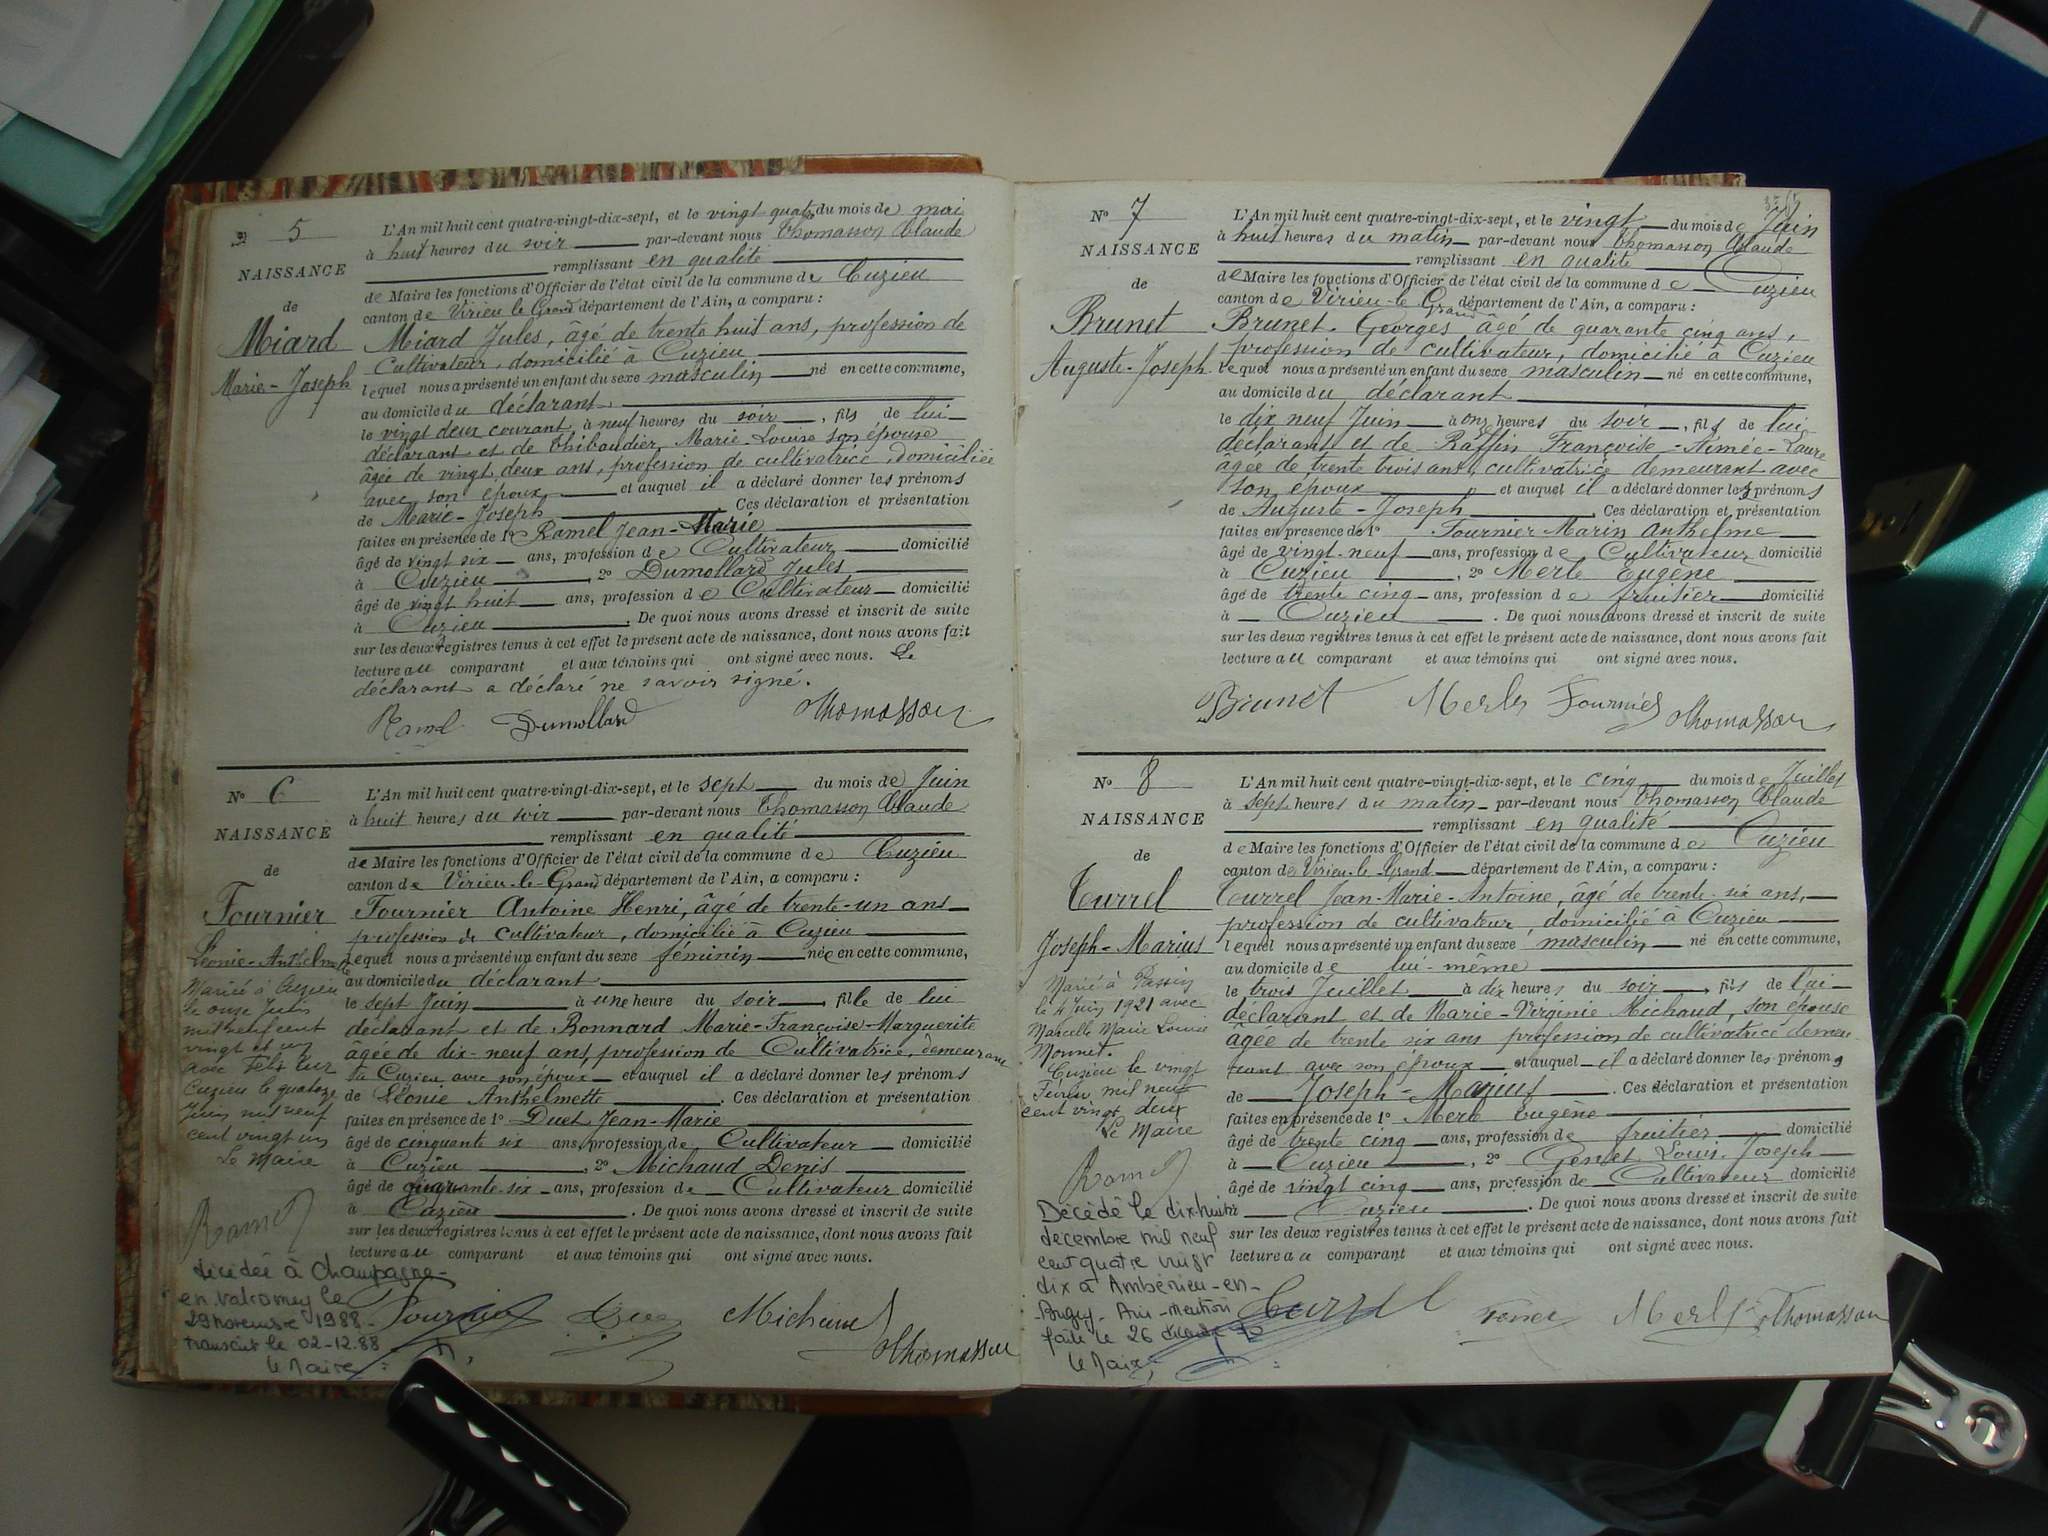 N° 5
NAISSANCE
de
Miard
Marie-Joseph
L'An mil huit cent quatre-vingt-dix-sept, et le vingt quatre du mois de mai
à huit heures du soir par-devant nous Thomasson Claude
remplissant en qualité
de Maire les fonctions d'Officier de l'état civil de la commune de Cuzieu
canton de Virieu le Grand département de l'Ain, a comparu :
Miard Jules, âgé de trente huit ans, profession de
Cultivateur, domicilié à Cuzieu
lequel nous a présenté un enfant du sexe masculin né en cette commune,
au domicile du déclarant
le vingt deux courant, à neuf heures du soir, fils de lui
déclarant et de Thibaudier, Marie-Louise son épouse
âgée de vingt deux ans, profession de cultivatrice, domiciliée
avec son époux et auquel il a déclaré donner les prénoms
de Marie-Joseph Ces déclaration et présentation
faites en présence de 1° Ramel Jean-Marie
âgé de vingt six ans, profession de Cultivateur domicilié
à Cuzieu, 2° Dumollard Jules
âgé de vingt huit ans, profession de Cultivateur domicilié
à Cuzieu. De quoi nous avons dressé et inscrit de suite
sur les deux registres tenus à cet effet le présent acte de naissance, dont nous avons fait
lecture au comparant et aux témoins qui ont signé avec nous. Le
déclarant a déclaré ne savoir signé.
Ramel Dumollard Thomasson
N° 6
NAISSANCE
de
Fournier
Léonie-Anthelmette
Mariée à Cuzieu
le onze Juin
mil neuf cent
vingt et un
avec
Cuzieu le quatorze
Juin mil neuf
cent vingt un
Le Maire
Ramel
décédée à Champagne-
en Valromey le
29 novembre 1988.
transcrit le 02-12.88
le Maire
L'An mil huit cent quatre-vingt-dix-sept, et le sept du mois de Juin
à huit heures du soir par-devant nous Thomasson Claude
remplissant en qualité
de Maire les fonctions d'Officier de l'état civil de la commune de Cuzieu
canton de Virieu-le-Grand département de l'Ain, a comparu :
Fournier Antoine Henri, âgé de trente-un ans
profession de cultivateur, domicilié à Cuzieu
lequel nous a présenté un enfant du sexe féminin née en cette commune,
au domicile du déclarant
le sept Juin à une heure du soir, fille de lui
déclarant et de Bonnard Marie-Françoise-Marguerite
âgée de dix-neuf ans, profession de Cultivatrice, demeurant
à Cuzieu avec son époux et auquel il a déclaré donner les prénoms
de Léonie Anthelmette. Ces déclaration et présentation
faites en présence de 1° Duet Jean-Marie
âgé de cinquante six ans, profession de Cultivateur domicilié
à Cuzieu, 2° Michaud Denis
âgé de quarante-six ans, profession de Cultivateur domicilié
à Cuzieu. De quoi nous avons dressé et inscrit de suite
sur les deux registres tenus à cet effet le présent acte de naissance, dont nous avons fait
lecture au comparant et aux témoins qui ont signé avec nous.
Fournier Michaud Thomasson
N° 7
NAISSANCE
de
Brunet
Auguste-Joseph
L'An mil huit cent quatre-vingt-dix-sept, et le vingt du mois de Juin
à huit heures du matin par-devant nous Thomasson Claude
remplissant en qualité
de Maire les fonctions d'Officier de l'état civil de la commune de Cuzieu
canton de Virieu-le Grand département de l'Ain, a comparu :
Brunet Georges âgé de quarante cinq ans,
profession de cultivateur, domicilié à Cuzieu
lequel nous a présenté un enfant du sexe masculin né en cette commune,
au domicile du déclarant
le dix neuf Juin à onze heures du soir, fils de lui
déclarant et de Raffin Françoise-Aimée-Laure
âgée de trente trois ans, cultivatrice demeurant avec
son époux et auquel il a déclaré donner les prénoms
de Auguste-Joseph. Ces déclaration et présentation
faites en présence de 1° Fournier Marin Anthelme
âgé de vingt-neuf ans, profession de Cultivateur domicilié
à Cuzieu, 2° Merle Eugène
âgé de trente cinq ans, profession de fruitier domicilié
à Cuzieu. De quoi nous avons dressé et inscrit de suite
sur les deux registres tenus à cet effet le présent acte de naissance, dont nous avons fait
lecture au comparant et aux témoins qui ont signé avec nous.
Brunet Merle Fournier Thomasson
N° 8
NAISSANCE
de
Turrel
Joseph-Marius
Marié à Passin
le 4 Juin 1921 avec
Marcelle Marie Louise
Monnet.
Cuzieu le vingt
Février mil neuf
cent vingt deux
Le Maire
Ramel
Décédé le dix huit
decembre mil neuf
cent quatre vingt
dix à Ambérieu-en-
Bugey-Ain-mention
faite le 26 décembre 90
le Maire
L'An mil huit cent quatre-vingt-dix-sept, et le cinq du mois de Juillet
à sept heures du matin par-devant nous Thomasson Claude
remplissant en qualité
de Maire les fonctions d'Officier de l'état civil de la commune de Cuzieu
canton de Virieu-le Grand département de l'Ain, a comparu :
Turrel Jean-Marie-Antoine, âgé de trente six ans,
profession de cultivateur, domicilié à Cuzieu
lequel nous a présenté un enfant du sexe masculin né en cette commune,
au domicile de lui-même
le trois Juillet à dix heures du soir, fils de lui
déclarant et de Marie-Virginie Michaud, son épouse
âgée de trente six ans profession de cultivatrice demeu
rant avec son époux et auquel il a déclaré donner les prénoms
de Joseph-Marius. Ces déclaration et présentation
faites en présence de 1° Merle Eugène
âgé de trente cinq ans, profession de fruitier domicilié
à Cuzieu, 2° Genet Louis Joseph
âgé de vingt cinq ans, profession de Cultivateur domicilié
à Cuzieu. De quoi nous avons dressé et inscrit de suite
sur les deux registres tenus à cet effet le présent acte de naissance, dont nous avons fait
lecture au comparant et aux témoins qui ont signé avec nous.
Turrel Merle Thomasson